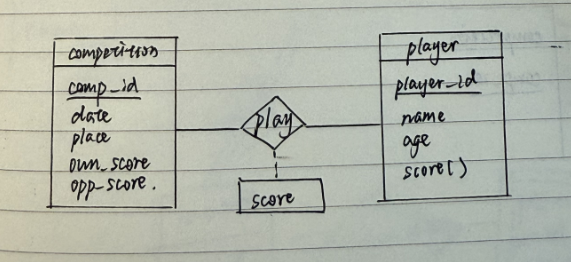 competition
comp_id
date
place
own_score
opp_score.
play
score
player
player_id
name
age
score()